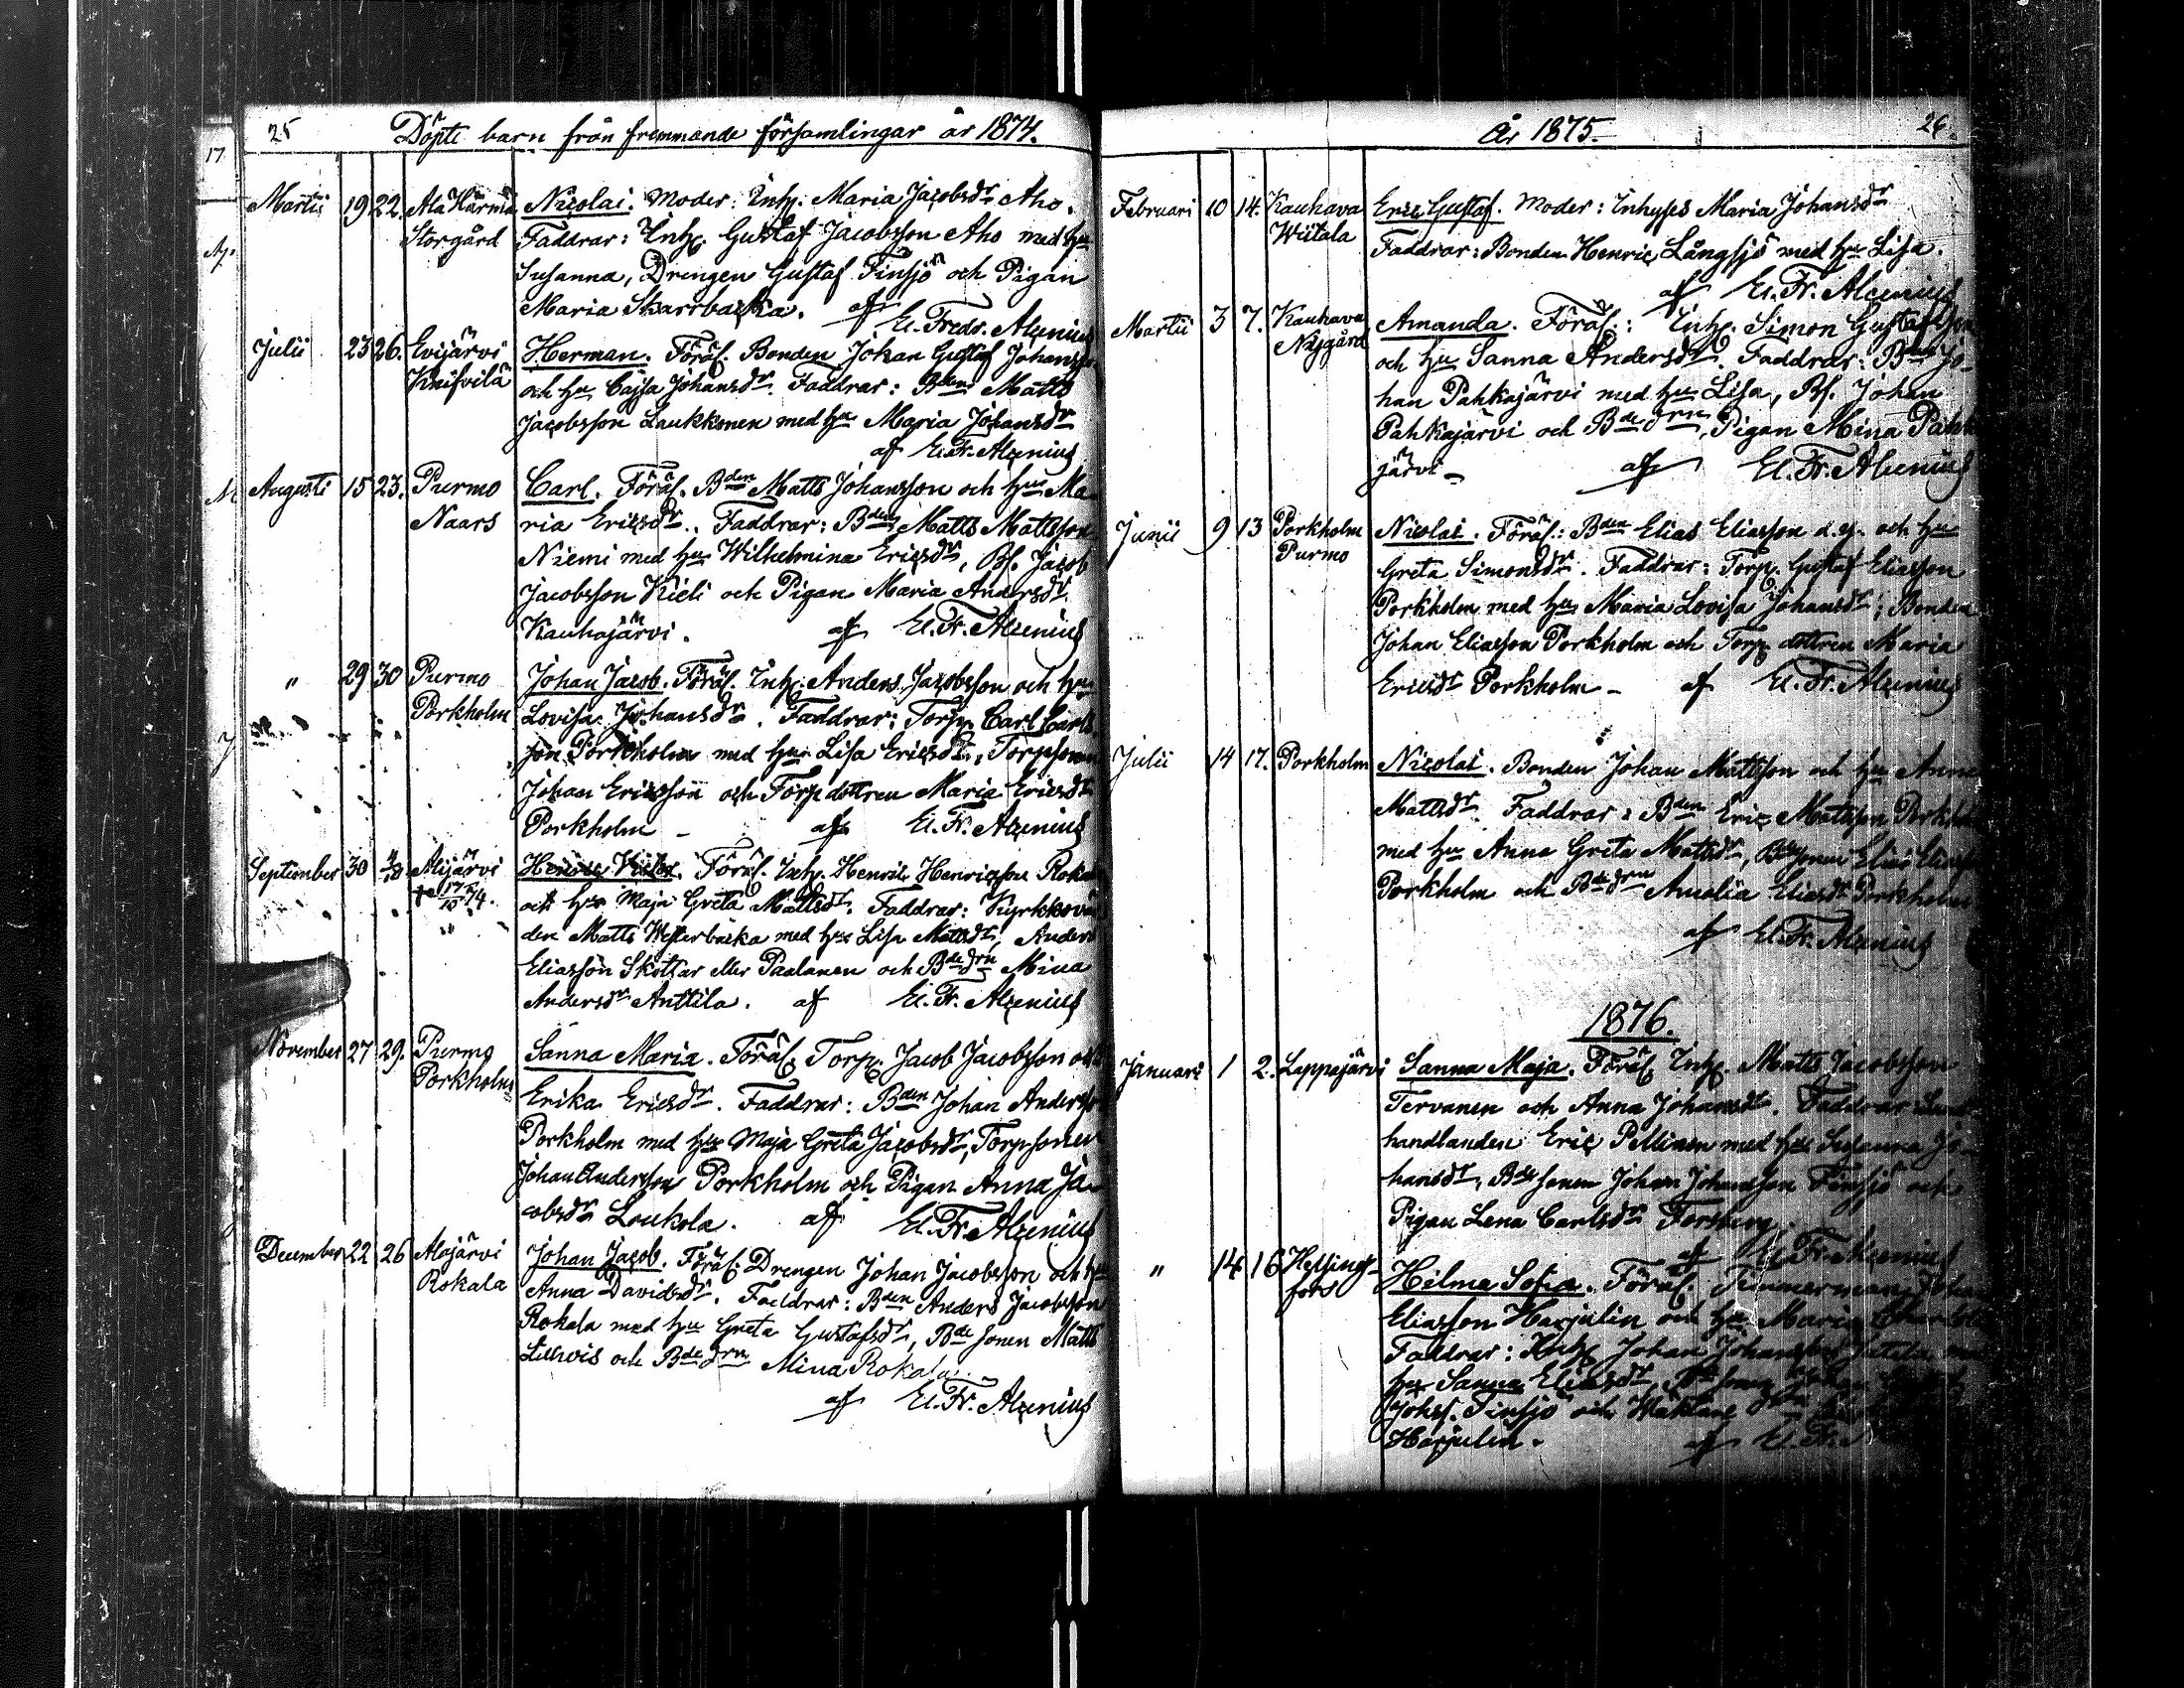 25 Döpte barn från fremmande församlingar år 1874.
Martii 19 22. Ala Härmä Nicolai. Moder: Inh. Maria Jacobsdr Aho.
Storgård Faddrar: Inh. Gustaf Jacobsson Aho med hu
Susanna, Drengen Gustaf Finsjö och Pigan
Maria Skarrbacka. af El. Fredr. Alcenius
Julii 23 26. Evijärvi Herman. Föräl. Bonden Johan Gustaf Johansson
Knifvilä och hu Cajsa Johansdr. Faddrar: Bden Matts
Jacobsson Laukkonen med hu Maria Johansdr
af El. Fr. Alcenius
Augusti 15 23. Purmo Carl. Föräl. Bden Matts Johansson och hu Ma-
Naars ria Ericsdr. Faddrar: Bden Matts Mattsson
Niemi med hu Wilhelmina Ericsdr, Bs. Jacob
Jacobsson Kieli och Pigan Maria Andersdr
Kauhajärvi. af El. Fr. Alcenius
" 29 30 Purmo Johan Jacob. Föräl. Inh. Anders Jacobsson och hu
Porkholm Lovisa Johansdr. Faddrar: Torp. Carl Carls
son Porkholm med hu Lisa Ericsdr, Torpsonen
Johan Ericsson och Torpdottren Maria Ericsdr
Porkholm - af El. Fr. Alcenius
September 30 4/10 Alajärvi Henric Victor. Föräl. Inh. Henric Henricsson Roka
17/10 74. och hu Maja Greta Mattsdr. Faddrar: Kyrkovär
den Matts Westerbacka med hu Lisa Mattsdr, Anders
Eliasson Skottar eller Paalanen och Bde drn Mina
Andersdr Anttila. af El. Fr. Alcenius
November 27 29. Purmo Sanna Maria. Föräl. Torp. Jacob Jacobsson och
Porkholm Erika Ericsdr. Faddrar: Bden Johan Anderss
Porkholm med hu Maja Greta Jacobsdr, Torpsonen
Johan Andersson Porkholm och Pigan Anna Ja-
cobsdr Loukola. af El. Fr. Alcenius
December 22 26 Alajärvi Johan Jacob. Föräl. Drengen Johan Jacobsson och hu
Rokala Anna Davidsdr. Faddrar: Bden Anders Jacobsson
Rokala med hu Greta Gustafsdr, Bde sonen Matts
och Bde drn Mina Rokala.
af El. Fr. Alcenius
År 1875. 26.
Februari 10 14. Kauhava Eric Gustaf. Moder: Inhyses Maria Johansdr
Wiitala Faddrar: Bonden Henric Långsjö med hu Lisa.
af El. Fr. Alcenius
Martii 3 7. Kauhava Amanda. Föräl.: Inh. Simon Gustafsson
Nygård och hu Sanna Andersdr. Faddrar: Bden Jo-
han Pahkajärvi med hu Lisa, Bs. Johan
Pahkajärvi och Bde drn, Pigan Mina Pahk
järvi - af El. Fr. Alcenius
Junii 9 13 Porkholm Nicolai. Föräl.: Bden Elias Eliasson d.y. och hu
Purmo Greta Simonsdr. Faddrar: Torp. Gustaf Eliasson
Porkholm med hu Maria Lovisa Johansdr, Bonden
Johan Eliasson Porkholm och Torp. dottren Maria
Ericsdr Porkholm - af El. Fr. Alcenius
Julii 14 17. Porkholm Nicolai. Bonden Johan Mattsson och hu Anna
Mattsdr. Faddrar: Bden Eric Mattsson Porkholm
med hu Anna Greta Mattsdr, Bdesonen Elias Eliass
Porkholm och Bde drn Amalia Eliasdr Porkholm
af El. Fr. Alcenius
1876.
Januari 1 2. Lappajärvi Sanna Maja. Föräl. Inh. Matts Jacobsson
Tervanen och Anna Johansdr. Faddrar
handlanden Eric Pellinen med hu Susanna Jo-
hansdr, Bde sonen Johan Johansson Finsjö och
Pigan Lena Carlsdr Forsberg.
af El. Fr. Alcenius
" 14 16 Helsing- Hilma Sofia. Föräl. Timmerman Johan
fors Eliasson Harjulin och hu Maria
Faddrar: Inh. Johan Johansson
hu Sanna Eliasdr,
Johs. Finsjö och
Harjulin. af El. Fr.